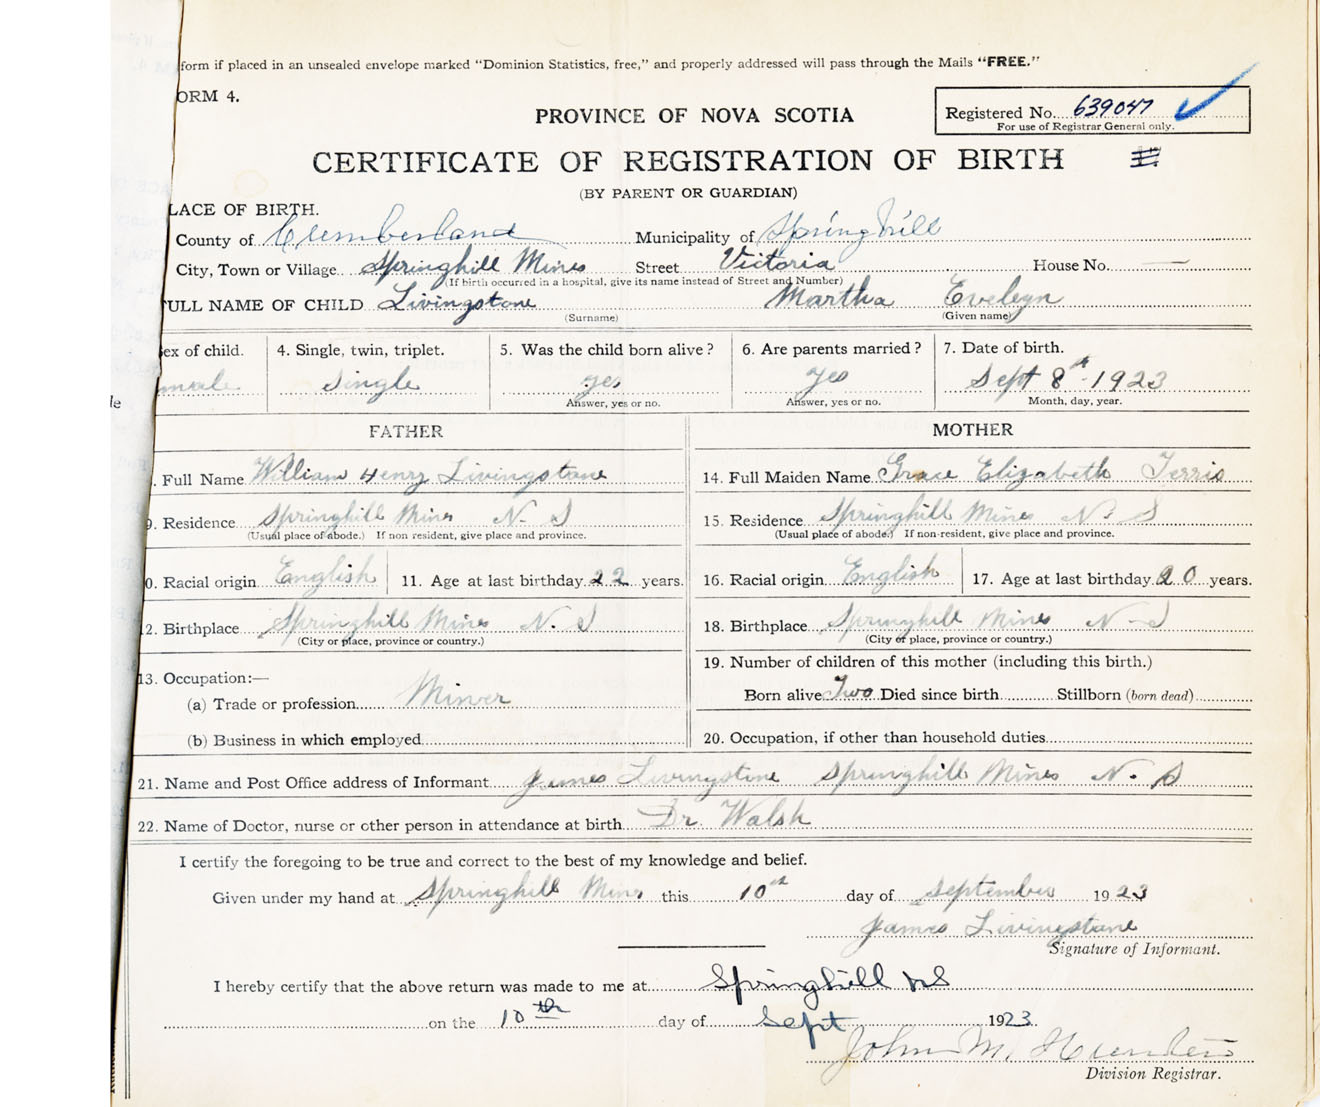 form if placed in an unsealed envelope marked "Dominion Statistics, free," and properly addressed will pass through the Mails "FREE."
ORM 4.
PROVINCE OF NOVA SCOTIA
Registered No. 639047
For use of Registrar General only.
CERTIFICATE OF REGISTRATION OF BIRTH
(BY PARENT OR GUARDIAN)
LACE OF BIRTH.
County of Cumberland Municipality of Springhill
City, Town or Village Springhill Mines Street Victoria House No. —
(If birth occurred in a hospital, give its name instead of Street and Number)
FULL NAME OF CHILD Livingstone Martha Evelyn
(Surname) (Given name)
ex of child. 4. Single, twin, triplet. 5. Was the child born alive? 6. Are parents married? 7. Date of birth.
male Single yes yes Sept 8th 1923
Answer, yes or no. Answer, yes or no. Month, day, year.
FATHER MOTHER
. Full Name William Henry Livingstone 14. Full Maiden Name Grace Elizabeth Terris
9. Residence Springhill Mines N. S 15. Residence Springhill Mines N. S
(Usual place of abode.) If non resident, give place and province. (Usual place of abode.) If non-resident, give place and province.
0. Racial origin English 11. Age at last birthday 22 years. 16. Racial origin English 17. Age at last birthday 20 years.
12. Birthplace Springhill Mines N. S 18. Birthplace Springhill Mines N - S
(City or place, province or country.) (City or place, province or country.)
19. Number of children of this mother (including this birth.)
13. Occupation:—
(a) Trade or profession Miner Born alive Two Died since birth Stillborn (born dead)
(b) Business in which employed 20. Occupation, if other than household duties
21. Name and Post Office address of Informant James Livingstone Springhill Mines N. S
22. Name of Doctor, nurse or other person in attendance at birth Dr. Walsh
I certify the foregoing to be true and correct to the best of my knowledge and belief.
Given under my hand at Springhill Mines this 10th day of September 1923
James Livingstone
Signature of Informant.
I hereby certify that the above return was made to me at Springhill NS
on the 10th day of Sept 1923
John M. Hunter
Division Registrar.